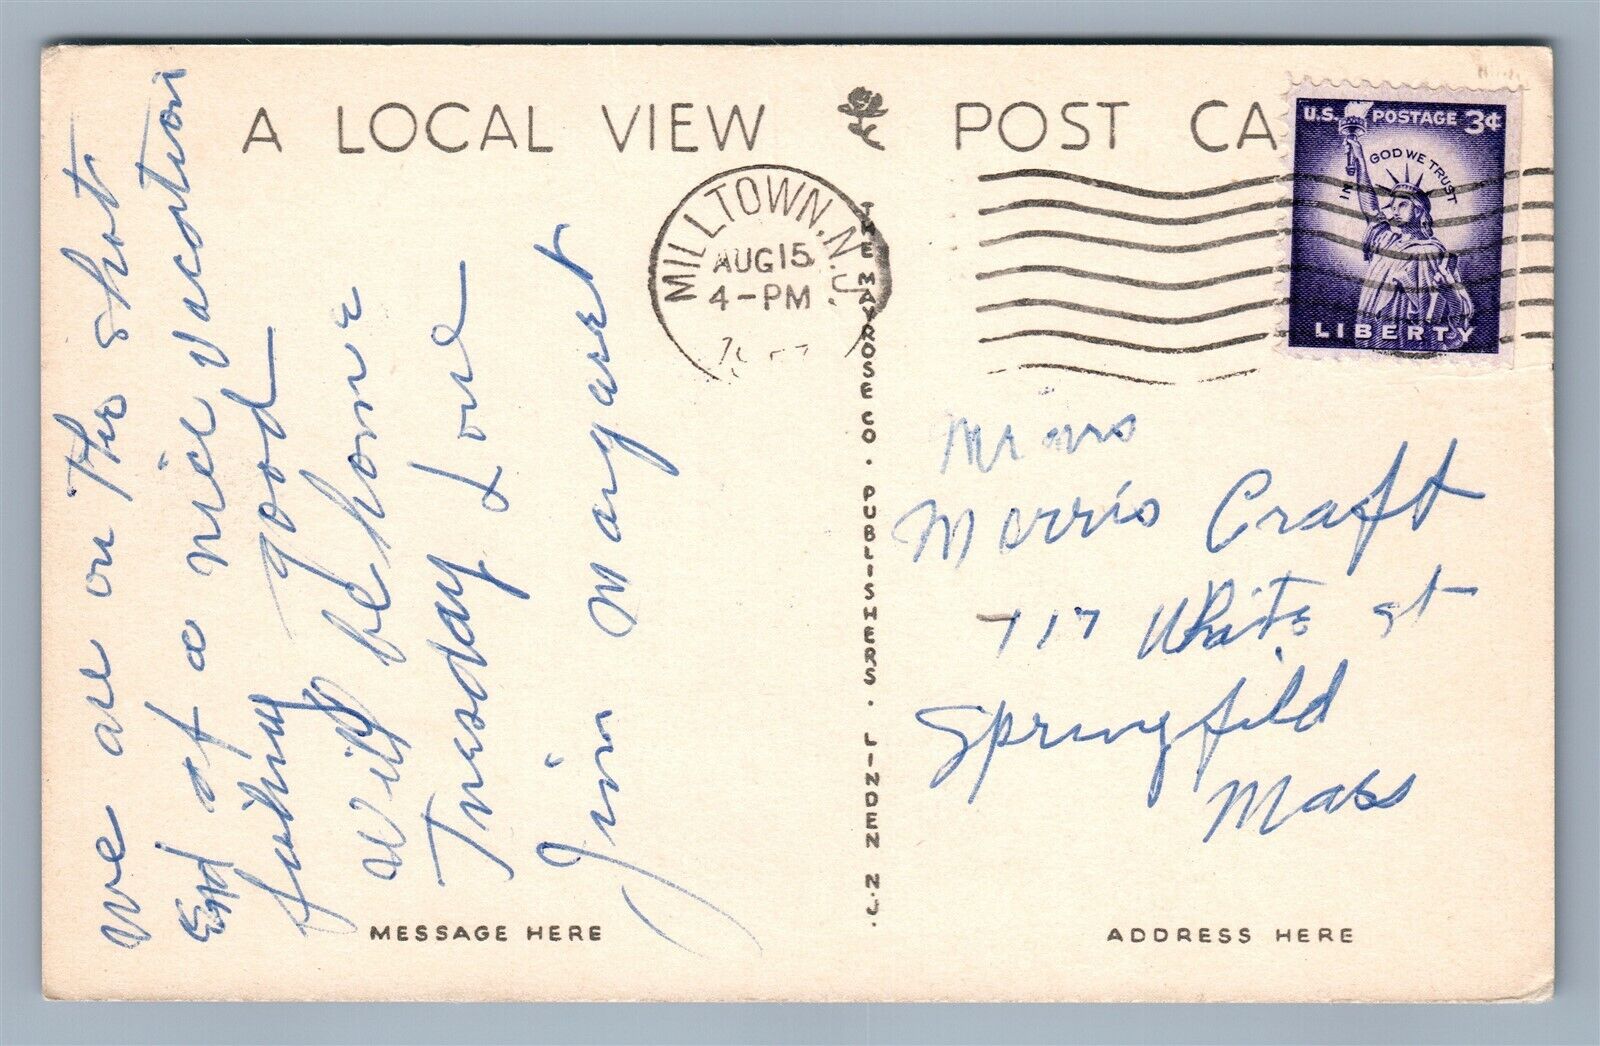 A LOCAL VIEW POST CA
U.S. POSTAGE 3¢
IN GOD WE TRUST
LIBERTY
MILLTOWN, N.J.
AUG 15
4-PM
THE MAYROSE CO. PUBLISHERS. LINDEN N.J.
we are on the short
End of a nice vacation
fishing good
will be home
Tuesday Love
Jim Margaret
Morris Craft
717 White st
Springfild
Mass
MESSAGE HERE
ADDRESS HERE